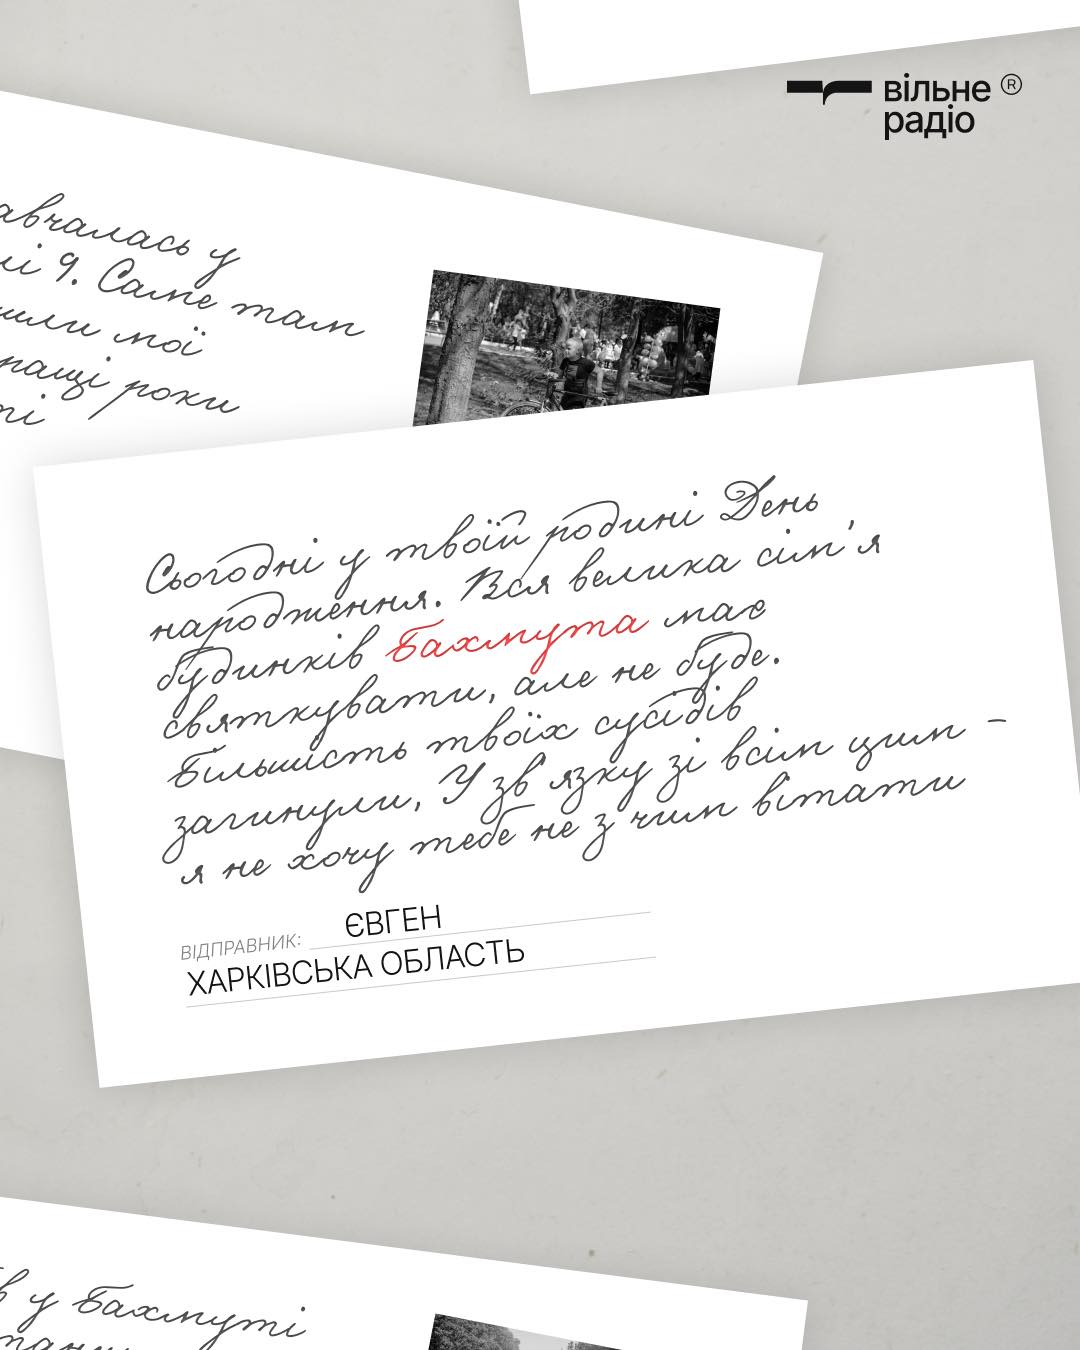 вільне ®
радіо
авчалась у
лі 9. Саме там
мої
ращі роки
ті
Сьогодні у твоїй родині День
народження. Вся велика сім'я
будинків Бахмута має
святкувати, але не буде.
Більшість твоїх сусідів
загинули, У зв'язку зі всім цим -
я не хочу тебе не з чим вітати
ВІДПРАВНИК: ЄВГЕН
ХАРКІВСЬКА ОБЛАСТЬ
в у Бахмуті